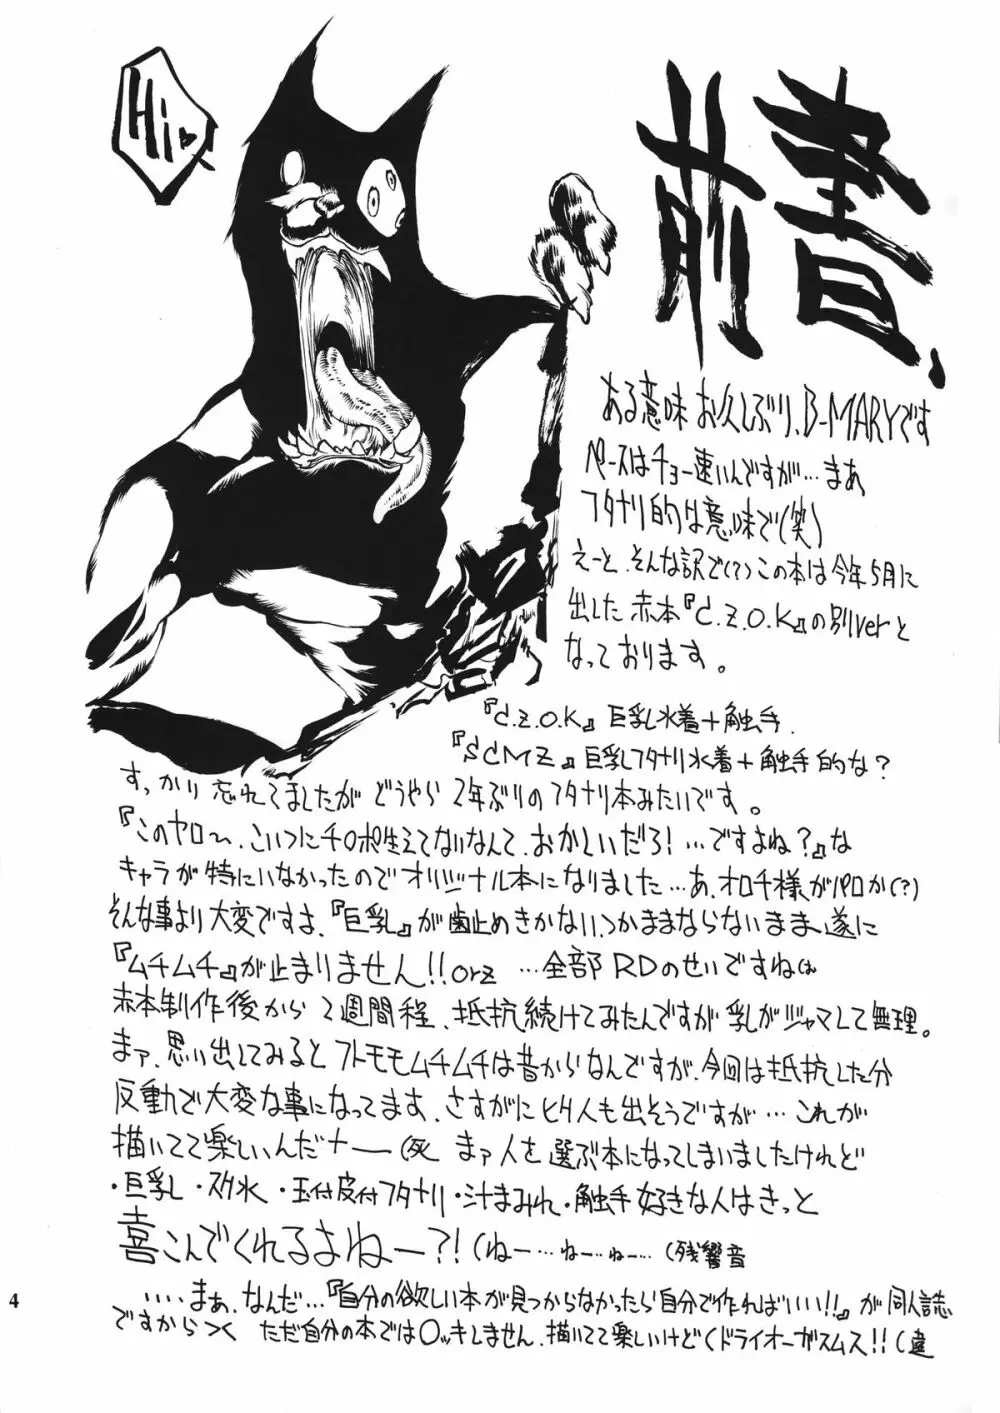 Hi♥
前書、
ある意味お久しぶり、B-MARYです
ペースはチョー速いんですが…まぁ
フタナリ的は意味で(笑)
えーと、そんな訳で(?)この本は今年5月に
出した赤本『C.Z.O.K』の別verと
なっております。
『C.Z.O.K』巨乳水着+触手、
『SCMZ』巨乳フタナリ水着+触手的な?
すっかり忘れてましたがどうやら2年ぶりのフタナリ本みたいです。
『このヤロ〜、こいつにチ○ポ生えてないなんて、おかしいだろ!…ですよね?』な
キャラが特にいなかったのでオリジナル本になりました…あ、オロチ様がパロか(?)
そんな事より大変ですよ、『巨乳』が歯止めきかない、つかままならないまま、遂に
『ムチムチ』が止まりません!!orz …全部RDのせいですねは
赤本制作後から2週間程、抵抗続けてみたんですが乳がジャマして無理。
まァ、思い出してみるとフトモモムチムチは昔からなんですが、今回は抵抗した分
反動で大変な事になってます、さすがにヒク人も出そうですが…これが
描いてて楽しいんだナー(死 まァ人を選ぶ本になってしまいましたけれど
・巨乳・スク水・玉付皮付フタナリ・汁まみれ・触手好きな人はきっと
喜こんでくれるよねー?!(ねー…ねー…ねー…(残響音
....まぁ、なんだ…『自分の欲しい本が見つからなかったら自分で作ればいい!!』が同人誌
ですから>< ただ自分の本では○ッキしません、描いてて楽しいけど(ドライオーガスムス!!(違
4